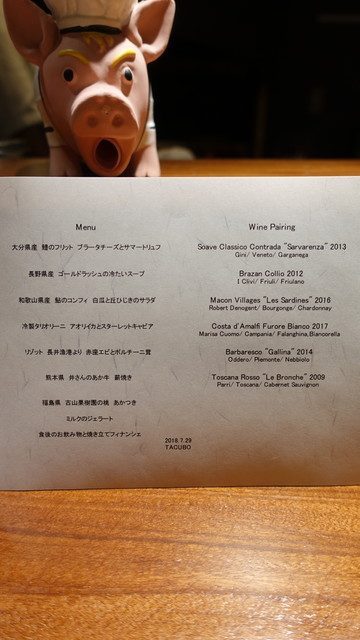 Menu
大分県産 鱧のフリット ブラータチーズとサマートリュフ
長野県産 ゴールドラッシュの冷たいスープ
和歌山県産 鮎のコンフィ 白瓜と丘ひじきのサラダ
冷製タリオリーニ アオリイカとスターレットキャビア
リゾット 長井漁港より 赤座エビとポルチーニ茸
熊本県 井さんのあか牛 薪焼き
福島県 古山果樹園の桃 あかつき
ミルクのジェラート
食後のお飲み物と焼き立てフィナンシェ
Wine Pairing
Soave Classico Contrada "Sarvarenza" 2013
Gini/ Veneto/ Garganega
Brazan Collio 2012
I Clivi/ Friuli/ Friulano
Macon Villages "Les Sardines" 2016
Robert Denogent/ Bourgonge/ Chardonnay
Costa d'Amalfi Furore Bianco 2017
Marisa Cuomo/ Campania/ Falanghina,Biancorella
Barbaresco "Gallina" 2014
Oddero/ Piemonte/ Nebbiolo
Toscana Rosso "Le Bronche" 2009
Parri/ Toscana/ Cabernet Sauvignon
2018.7.29
TACUBO